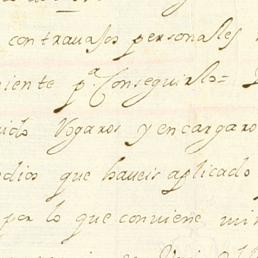 con travajos personales
niente p.ª Conseguirlo =
uido Rogaros y encargaro
dios que haveis aplicado
por lo que conviene mi